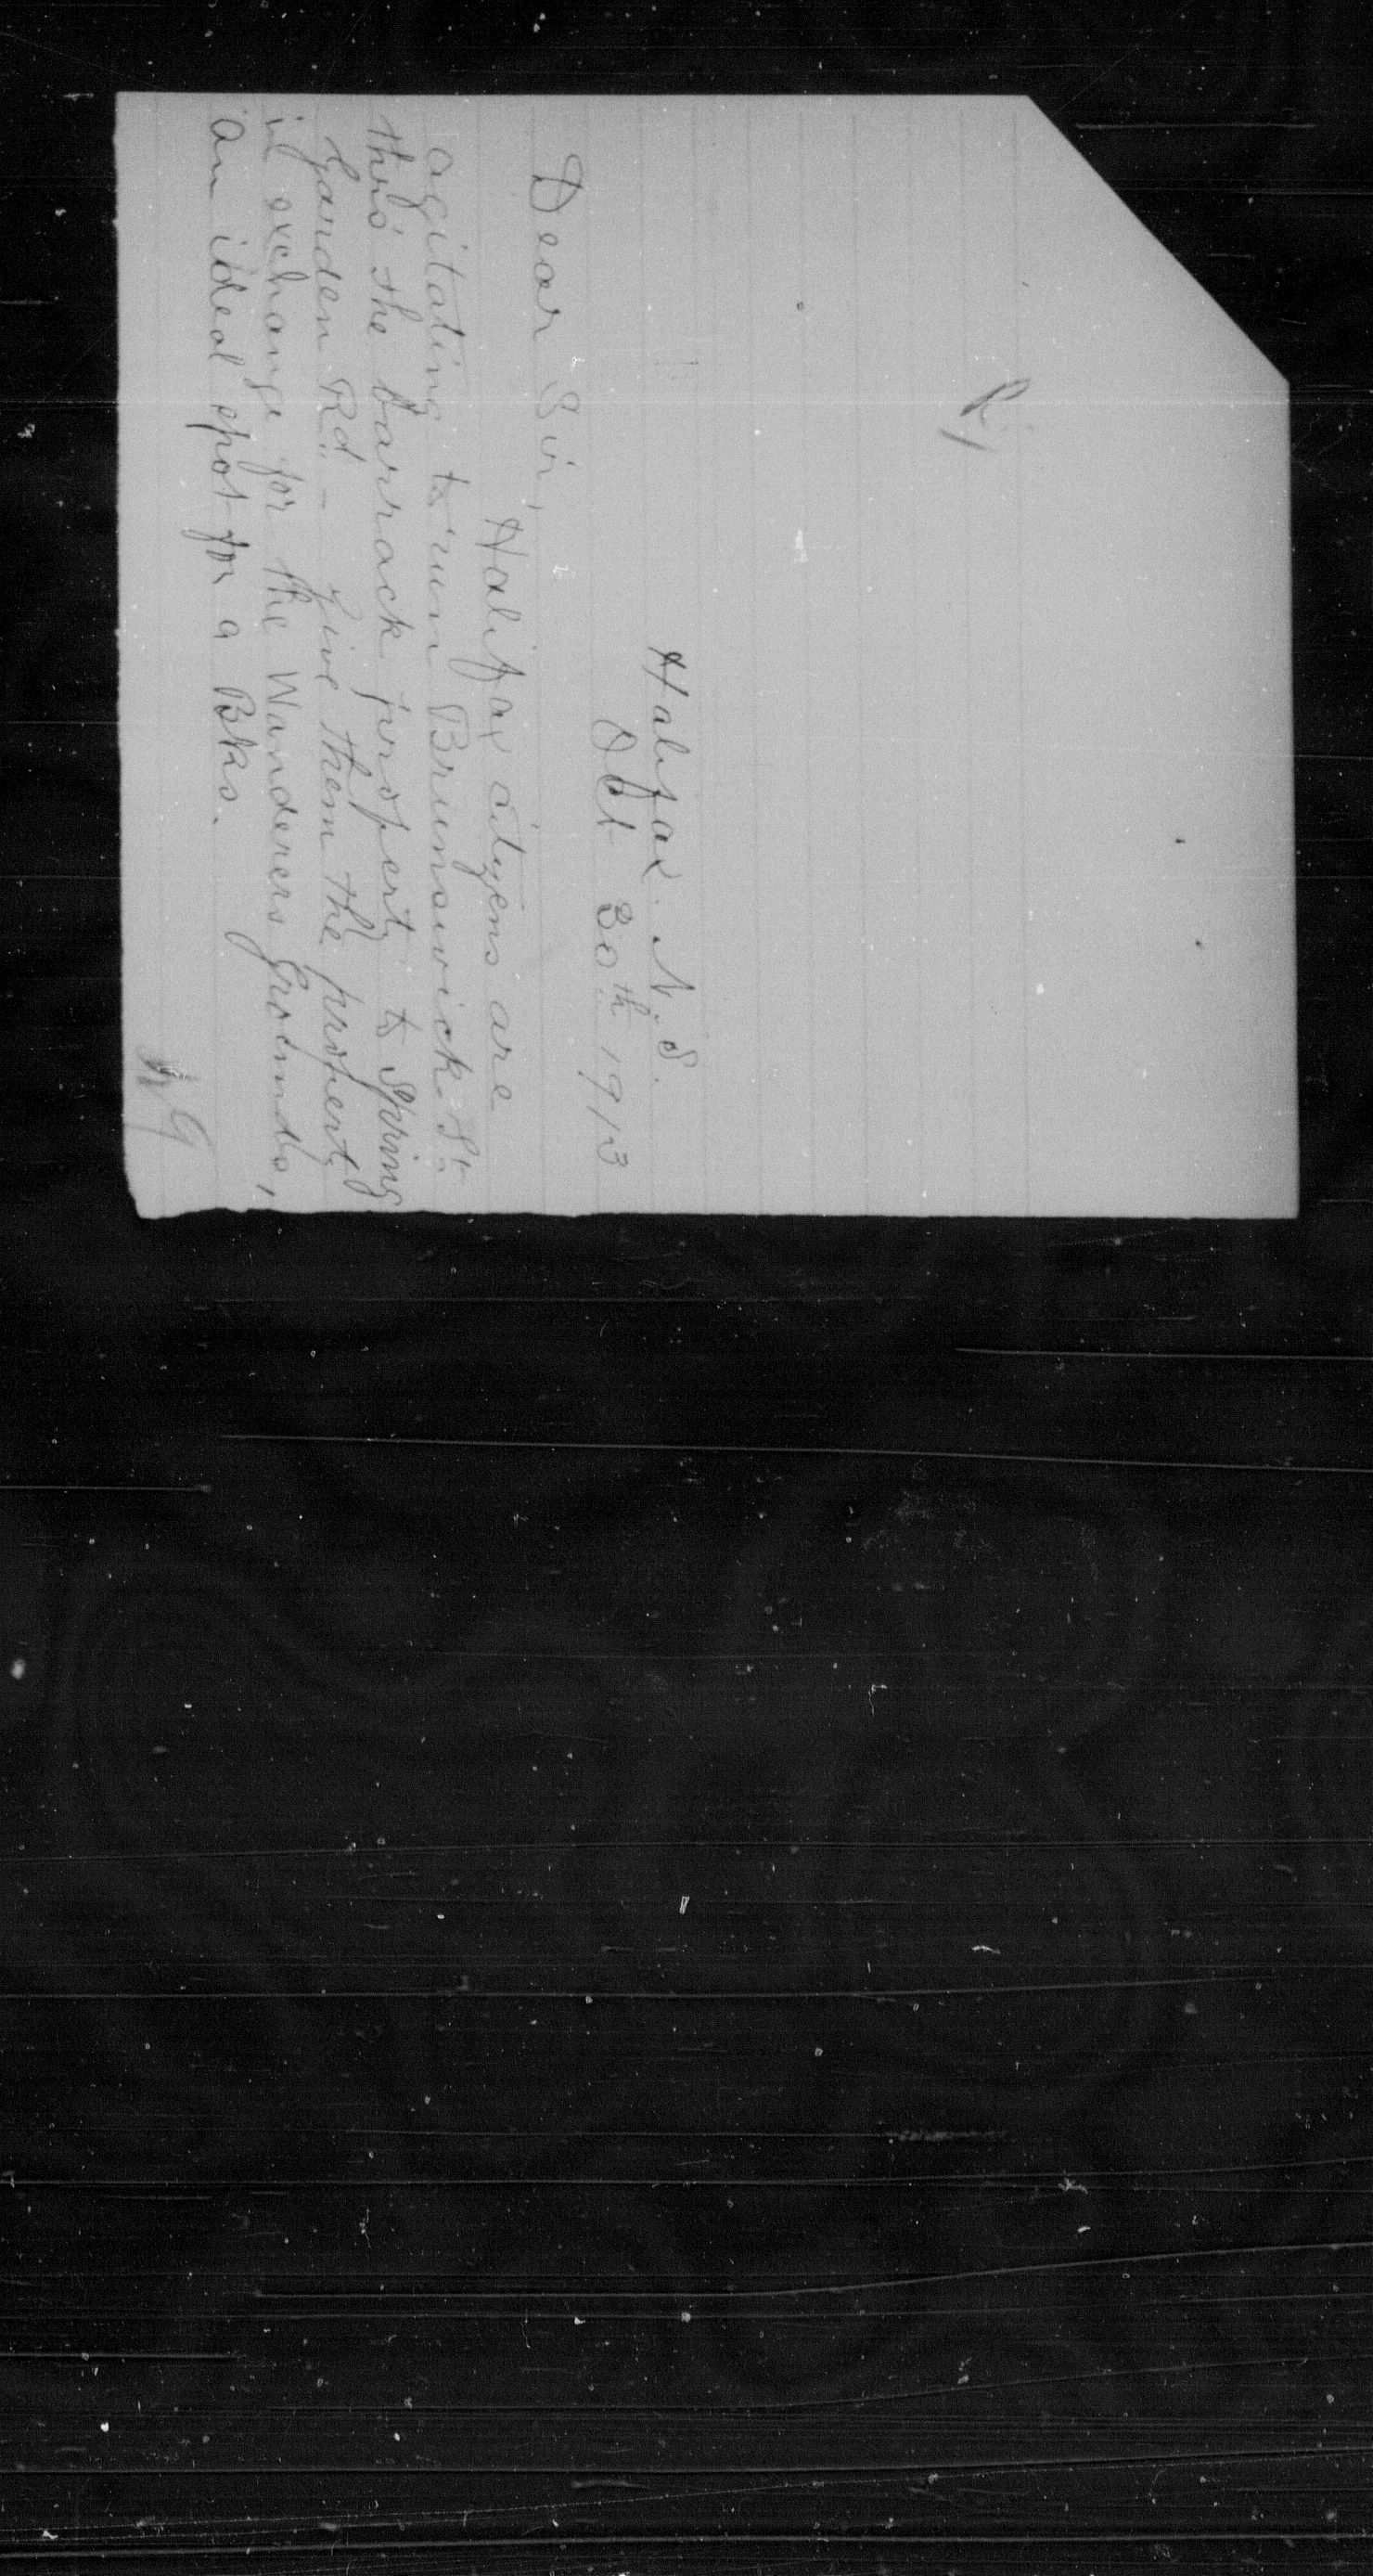 Halifax. N. S.
Oct 30th 1913
Dear Sir,
Halifax citizens are
agitating to run Brunswick St.
thro' the barrack property to Spring
Garden Rd. - Give them the property
in exchange for the Wanderers Grounds,
an ideal spot for a Bks.